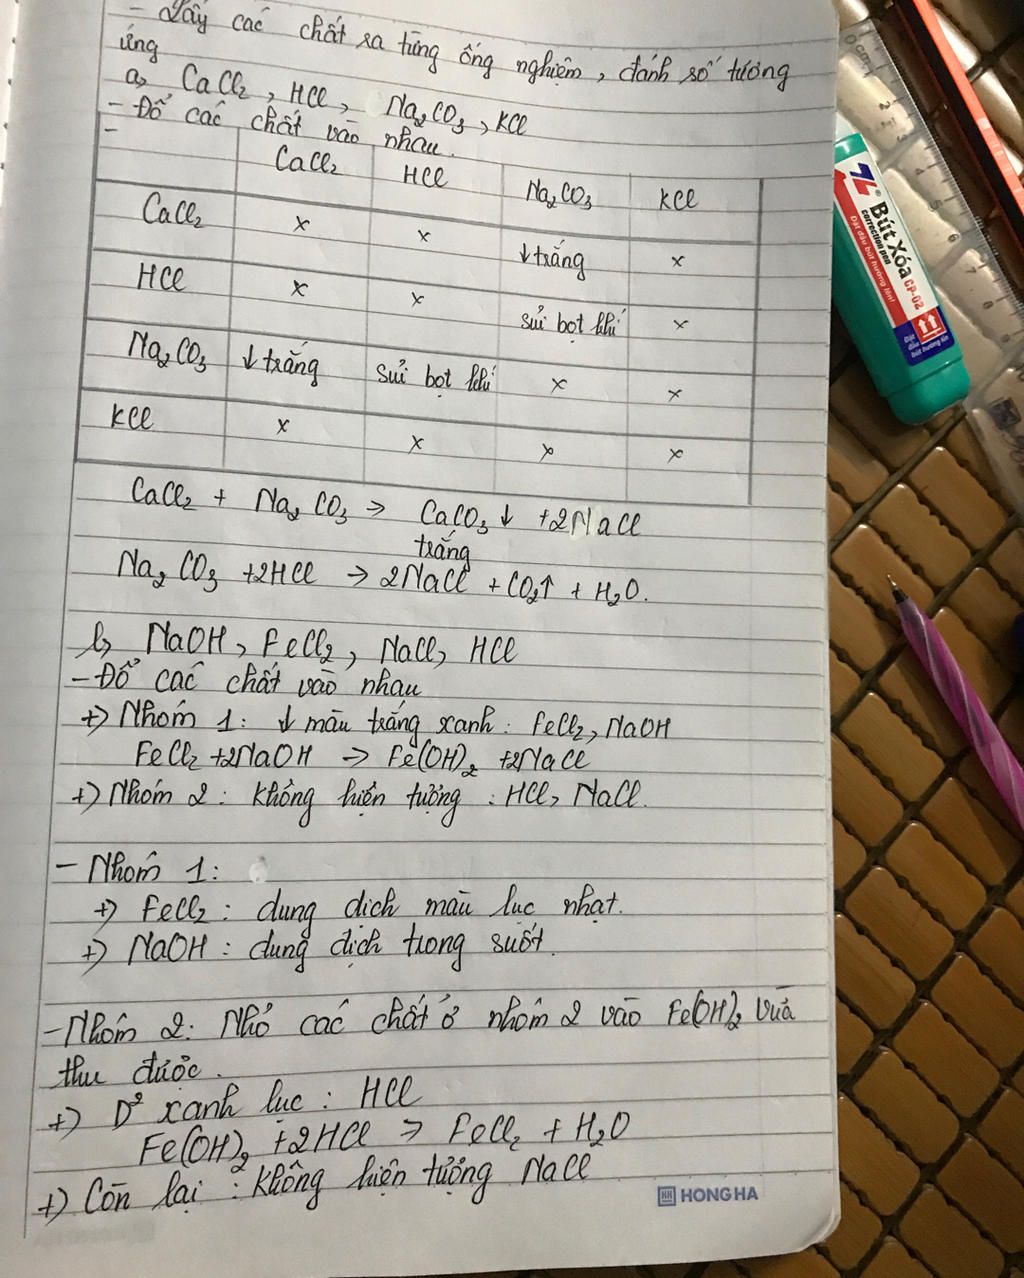 - Lấy các chất ra từng ống nghiệm, đánh số tương
ứng
a, CaCl2, HCl, Na2CO3, KCl
- Đổ các chất vào nhau.
-
CaCl2 HCl Na2CO3 KCl
CaCl2 x x ↓ trắng x
HCl x x sủi bọt khí x
Na2CO3 ↓ trắng sủi bọt khí x x
KCl x x x x
CaCl2 + Na2CO3 → CaCO3↓ +2NaCl
trắng
Na2CO3 +2HCl → 2NaCl + CO2↑ + H2O.
b, NaOH, FeCl2, NaCl, HCl
- Đổ các chất vào nhau
+) Nhóm 1: ↓ màu trắng xanh: FeCl2, NaOH
FeCl2 +2NaOH → Fe(OH)2 +2NaCl
+) Nhóm 2: Không hiện tượng: HCl, NaCl.
- Nhóm 1:
+) FeCl2: dung dịch màu lục nhạt.
+) NaOH: dung dịch trong suốt.
- Nhóm 2: Nhỏ các chất ở nhóm 2 vào Fe(OH)2 vừa
thu được.
+) D² xanh lục: HCl
Fe(OH)2 +2HCl → FeCl2 + H2O
+) Còn lại: Không hiện tượng NaCl
HH HONG HA
0 cm 1 2 3 4 5 6 7 8
TL
Bút Xóa CP-02
correction pen
Đặt đầu bút hướng lên!
Đặt
đầu
bút hướng lên